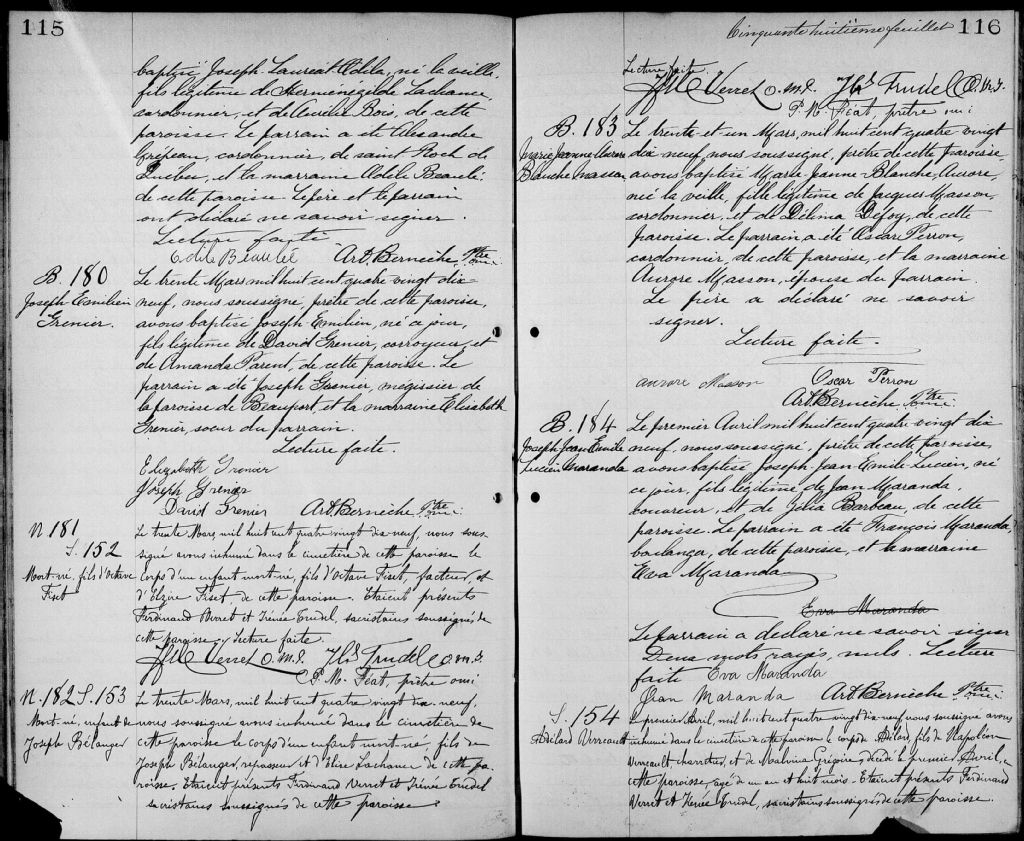 115
baptisé Joseph-Lauréat-Odela, né la veille,
fils légitime de Herménégilde Lachance,
cordonnier, et de Bois, de cette
paroisse. Le parrain a été Alexandre
Crépeau, cordonnier, de Saint Roch de
Québec, et la marraine Odile Beaulé
de cette paroisse. Le père et le parrain
ont déclaré ne savoir signer.
Lecture faite.
Art. Bernèche Ptre
o.m.i.
B. 180
Joseph Emilien
Grenier.
Le trente Mars mil huit cent quatre vingt dix-
neuf, nous soussigné, prêtre de cette paroisse,
avons baptisé Joseph-Emilien, né ce jour,
fils légitime de David Grenier, corroyeur, et
de Amanda Parent, de cette paroisse. Le
parrain a été Joseph Grenier, mégissier de
la paroisse de Beauport, et la marraine Elisabeth
Grenier, soeur du parrain.
Lecture faite.
Elizabeth Grenier
Joseph Grenier
David Grenier Art. Bernèche Ptre
o.m.i.
N 181
S. 152
Mort-né, fils d'Octave
Fiset
Le trente Mars mil huit cent quatre vingt dix-neuf, nous sous-
signé avons inhumé dans le cimetière de cette paroisse le
corps d'un enfant mort-né, fils d'Octave Fiset, facteur, et
d'Elzire Fiset, de cette paroisse. Etaient présents
Ferdinand Verret et Irénée Trudel, sacristains soussignés de
cette paroisse. Lecture faite.
Verret o.m.i. Trudel o.m.i.
P. M. Féat, prêtre omi
N. 182 S. 153
Mort-né, enfant de
Joseph Bélanger
Le trente Mars, mil huit cent quatre vingt dix-neuf,
nous soussigné avons inhumé dans le cimetière de
cette paroisse le corps d'un enfant mort-né, fils de
Joseph Bélanger, repasseur et d'Elise Lachance de cette pa-
roisse. Etaient présents Ferdinand Verret et Irénée Trudel
sacristains soussignés de cette paroisse
Cinquante huitième feuillet 116
Lecture faite.
Verret o.m.i. Trudel o.m.i.
P. M. Féat, prêtre omi
B. 183
Marie Jeanne Aurore
Blanche Masson
Le trente et un Mars, mil huit cent quatre vingt
dix-neuf, nous soussigné, prêtre de cette paroisse
avons baptisé Marie-Jeanne-Blanche-Aurore,
née la veille, fille légitime de Jacques Masson,
cordonnier, et de Délima Defoy, de cette
paroisse. Le parrain a été Oscar Perron,
cordonnier, de cette paroisse, et la marraine
Aurore Masson, épouse du parrain.
Le père a déclaré ne savoir
signer.
Lecture faite.
aurore Masson Oscar Perron
Art. Bernèche Ptre
o.m.i.
B. 184
Joseph Jean Emile
Lucien Maranda
Le premier Avril mil huit cent quatre vingt dix
neuf, nous soussigné, prêtre de cette paroisse
avons baptisé Joseph-Jean-Emile-Lucien, né
ce jour, fils légitime de Jean Maranda,
couvreur, et de Délia Barbeau, de cette
paroisse. Le parrain a été François Maranda,
boulanger, de cette paroisse, et la marraine
Eva Maranda
Eva Maranda
Le parrain a déclaré ne savoir signer
Deux mots rayés, nuls. Lecture
faite Eva Maranda
Jean Maranda Art. Bernèche Ptre
o.m.i.
S. 154
Adélard Verreault
Le premier Avril, mil huit cent quatre vingt dix-neuf nous soussigné avons
inhumé dans le cimetière de cette paroisse le corps de Adélard, fils de Napoléon
Verreault charretier, et de Malvina Grégoire, décédé le premier Avril, en
cette paroisse, agé de un an et huit mois. Etaient présents Ferdinand
Verret et Irénée Trudel, sacristains soussignés de cette paroisse.